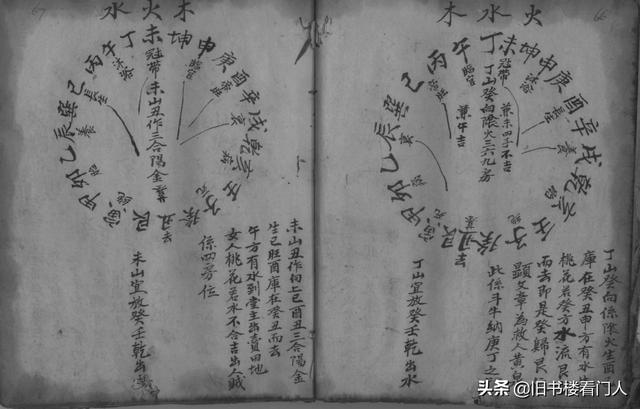 火水木
丁未坤申庚酉辛戌乾亥壬子癸丑艮寅甲卯乙辰巽巳丙午
冠帶
兼未四子不吉
丁山癸向陰火三六九房
兼午吉
丁山癸向係陰火生酉
庫在癸丑申方有水
桃花若癸方水流艮
而去即是癸歸艮
顯文章為救人黃白
此係斗牛納庚丁之
丁山宜放癸壬乾出水
木火水
未坤申庚酉辛戌乾亥壬子癸丑艮寅甲卯乙辰巽巳丙午丁
冠帶
未山丑作三合陽金
未山丑作向上巳酉丑三合陽金
生巳旺酉庫在癸丑而去
午方有水到堂主出賣田地
女人桃花若水不合吉出人賊
係四房位
未山宜放癸壬乾出
头条 @旧书楼看门人